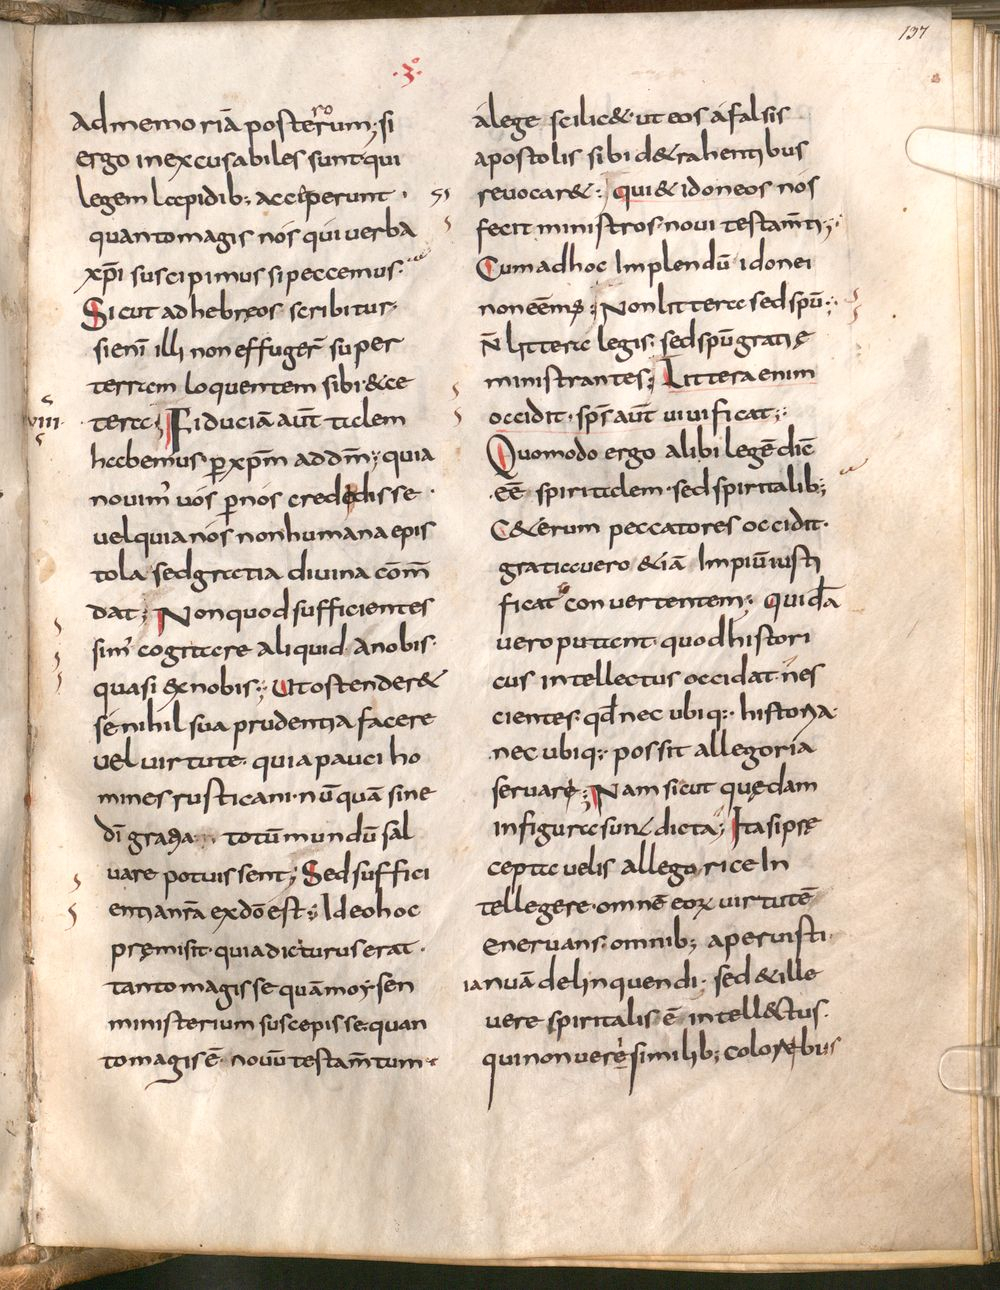 137
·3·
Ad memoriā posterorum; si
ergo inexcusabiles sunt qui
legem lapidib; acciperunt ·
quanto magis nós qui verba
xp̄i suscipimus si peccemus·
Sicut ad hebreos scribitur·
si enī illi non effuger̄ super
terram loquentem sibi & ce
tera; Fiduciā aūt talem
viii·
habemus ꝑ xp̄m ad dm̄; quia
novim̓ vós ꝑ nós credidisse·
vel quia nós non humana epis
tola sed gratia divina cōm̄
dat; Non quod sufficientes
sim̓ cogitare aliquid· A nobis·
quasi ex nobis; Ut ostender&
sé nihil sua prudentia facere
vel virtute· quia pauci ho
mines rusticani· nūquā sine
dī gratia · totū mundū sal
vare potuissent; Sed suffici
entia nr̄a ex dō est; Ideo hoc
premisit· quia dicturus erat·
tanto magis se quā moysen
ministerium suscepisse· quan
to magis ē· novū testam̄tum·
á lege scilic& · ut eos á falsis
apostolis sibi d&rahentibus
revocar& ; qui & idoneos nós
fecit ministros· novi testam̄ti;
Cum ad hoc Implendū idonei
non eēmꝰ; Non littera sed spū;
N̄ littera legis· sed spū gratię
ministrantes; Littera enim
occidit· sps̄ aūt vivificat;
Quomodo ergo alibi legē dic̄
eē spiritalem· sed spiritalib;
C&erum peccatores occidit·
gratia vero &iā Impiū iusti
ficat convertentem; Quidā
vero putant· quod histori
cus intellectus occidat· nes
cientes· qd̄ nec ubiq;· historia·
nec ubiq;· possit allegoria
servare; Nam sicut quędam
in figura sun& dicta; Ita si pre
cepta velis allegorice In
tellegere· omnē eoꝝ virtutē
enervans· omnib; aperuisti·
ianuā delinquendi· sed & ille
vere spiritalis ē intell&ctus·
qui non veresimilib; coloribus